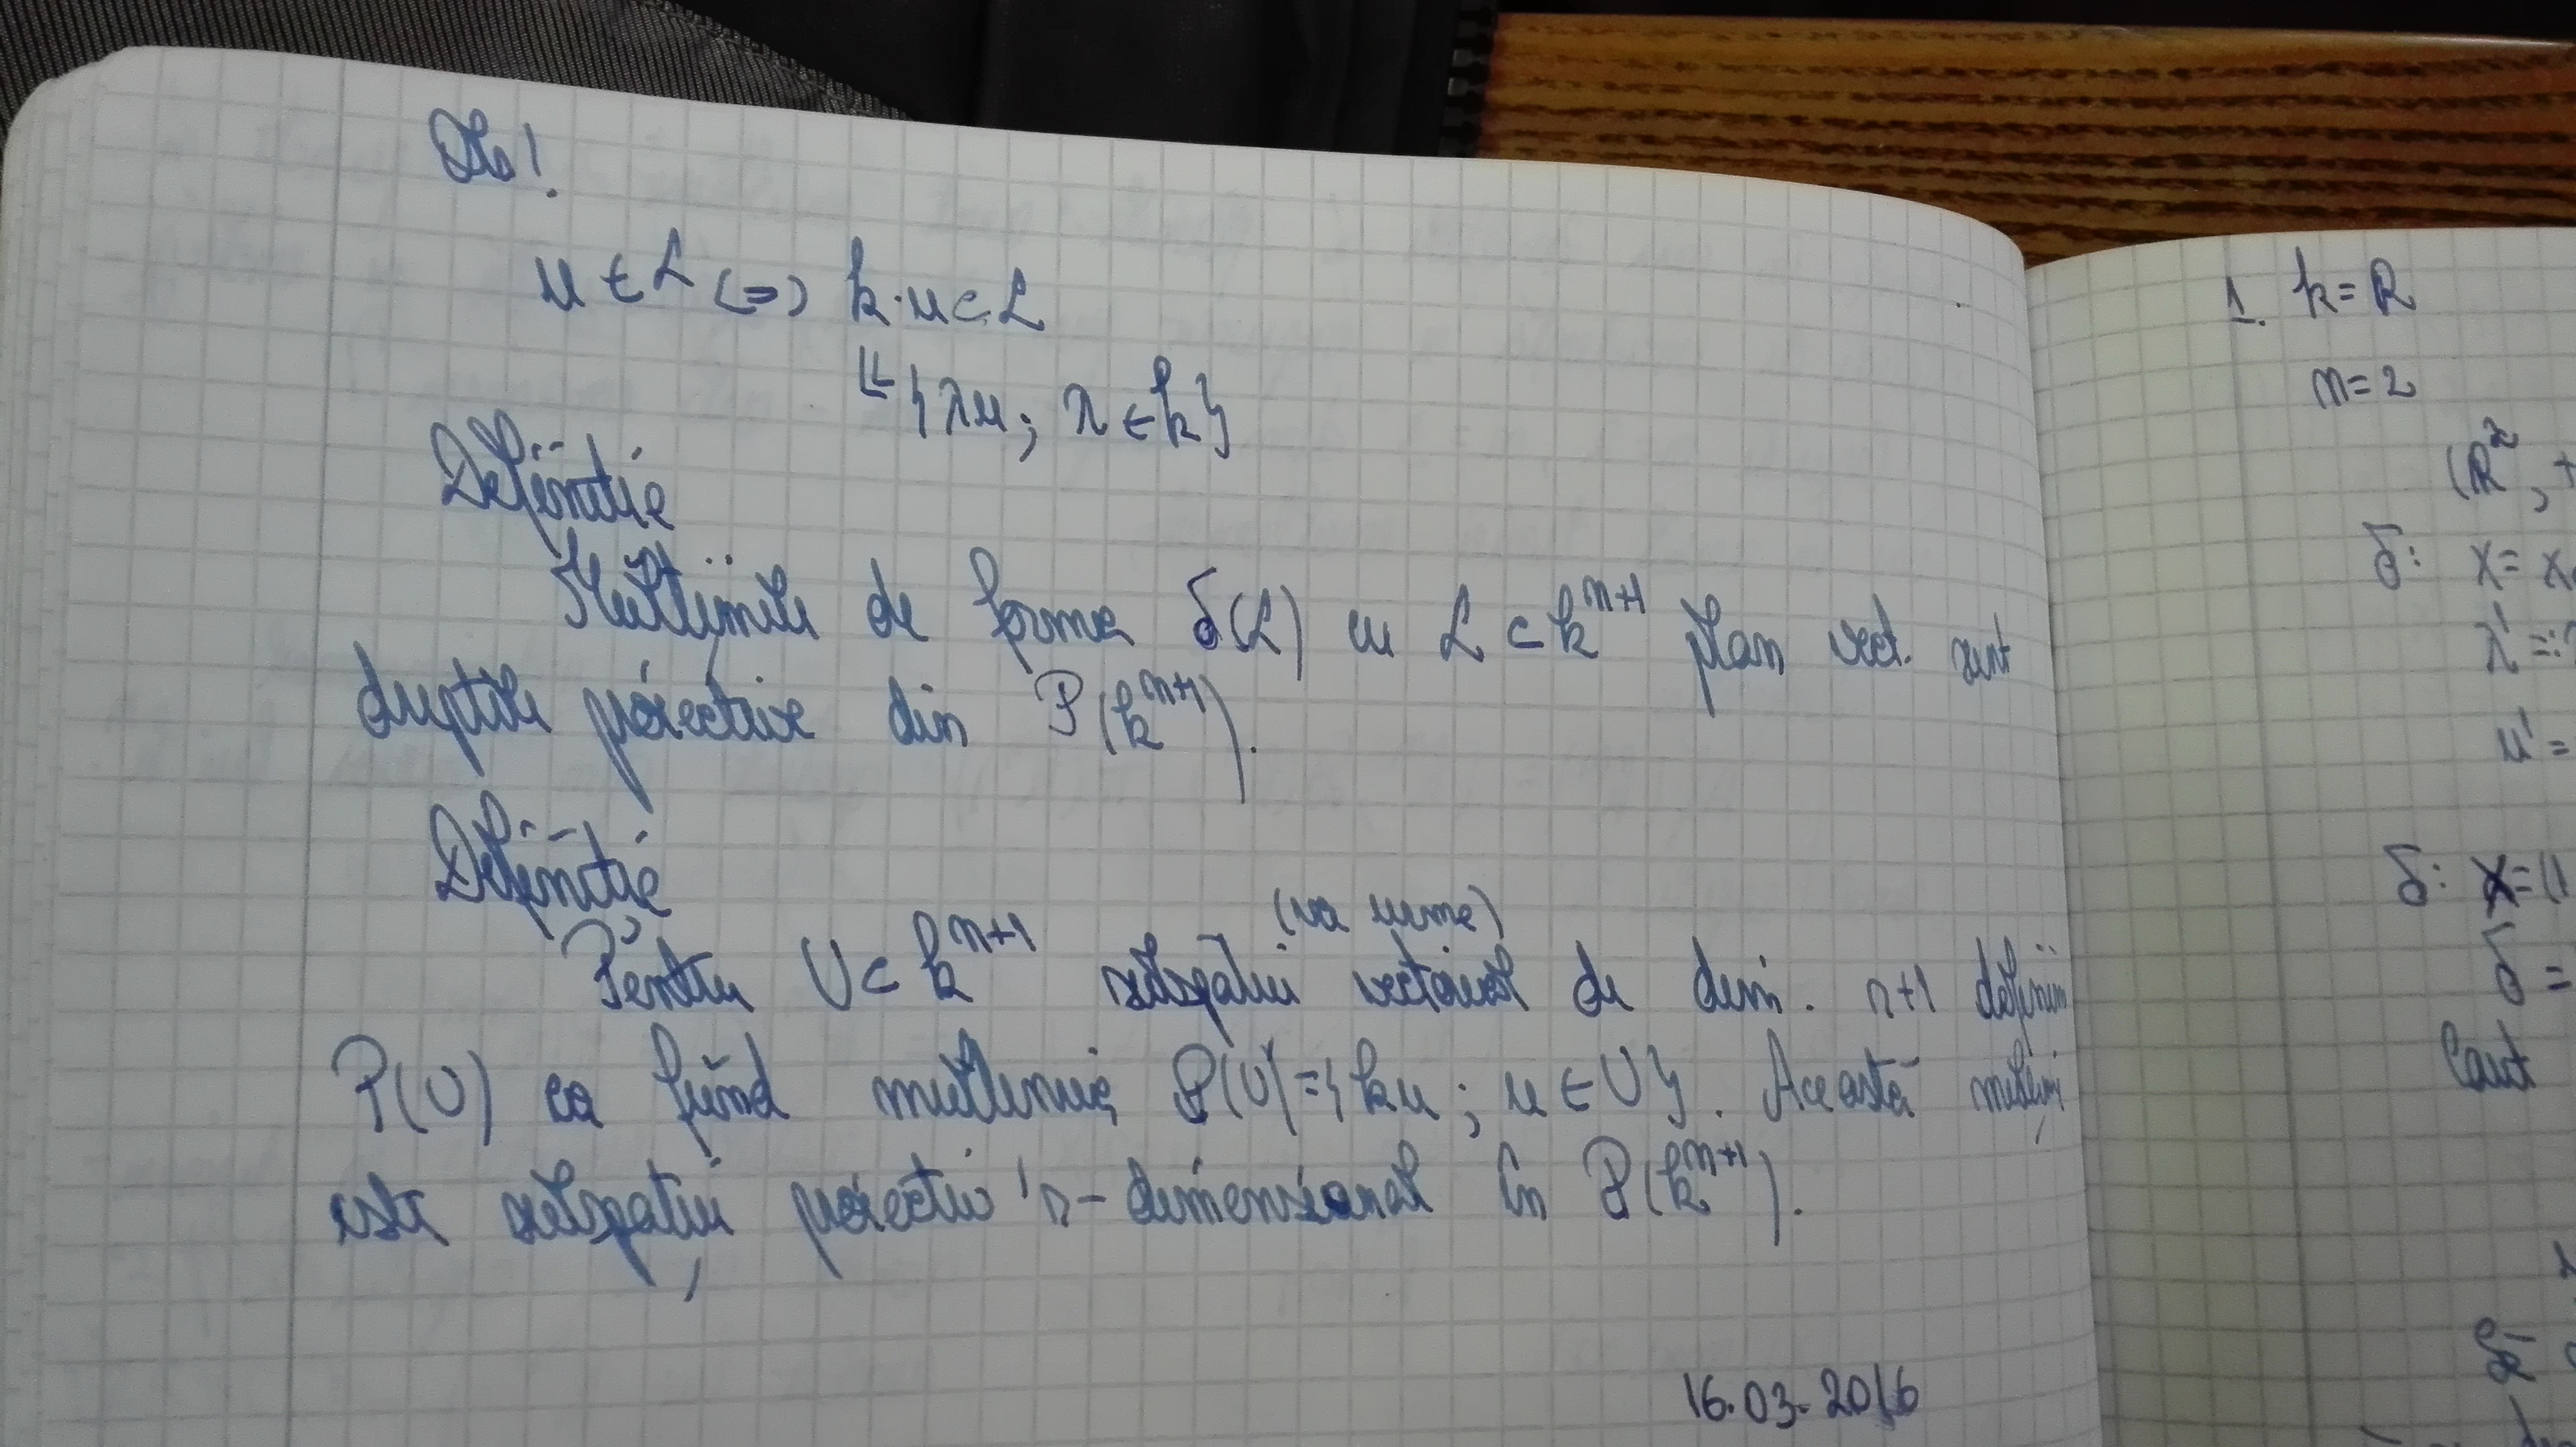 Obs!
u ∈ L (=) k·u ⊂ L
{λu; λ ∈ k}
Definiție
Mulțimile de forma δ(L) cu L ⊂ k^{n+1} plan vect. sunt
dreptele proiective din P(k^{n+1}).
Definiție
(va urma)
Pentru U ⊂ k^{n+1} subspațiu vectorial de dim. n+1 definim
P(U) ca fiind mulțimea P(U) = {ku; u ∈ U}. Această mulțimi
este subspațiu proiectiv n-dimensional în P(k^{n+1}).
16.03.2016
1. k = R
n = 2
(R^2, +
δ: x = x
λ' =:
u' =
δ: x = (1
δ =
Caut